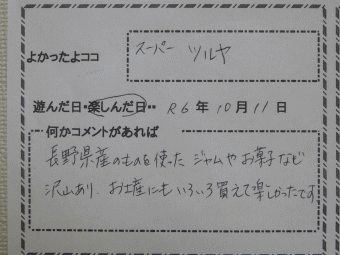 よかったよココ
スーパー ツルヤ
遊んだ日・楽しんだ日・・ R6年10月11日
何かコメントがあれば
長野県産のものを使った ジャムやお菓子など
沢山あり、お土産にもいろいろ買えて楽しかったです